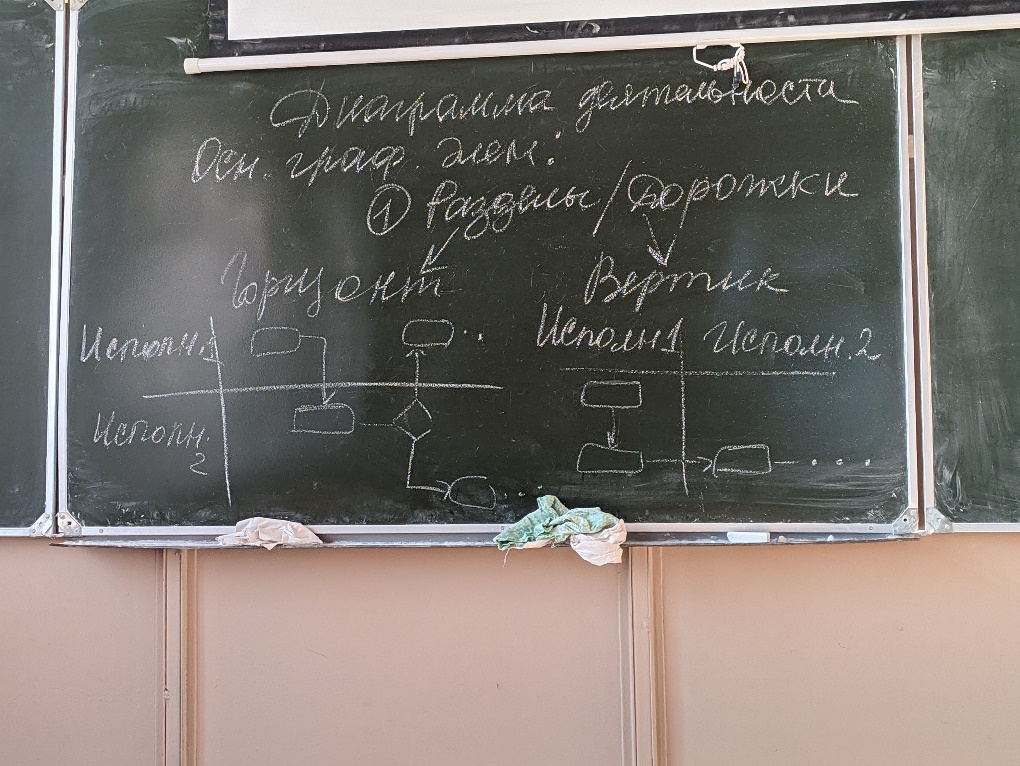 Диаграмма деятельности
Осн. граф. элем:
① Разделы/Дорожки
Горизонт Вертик
Исполн.1 Исполн1 Исполн.2
Исполн.
2